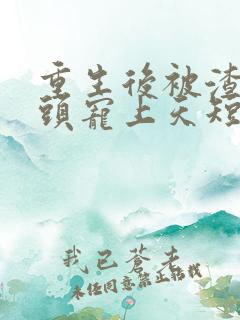 重生後被渣
頭寵上天短
我已蒼老
未經同意禁止轉載